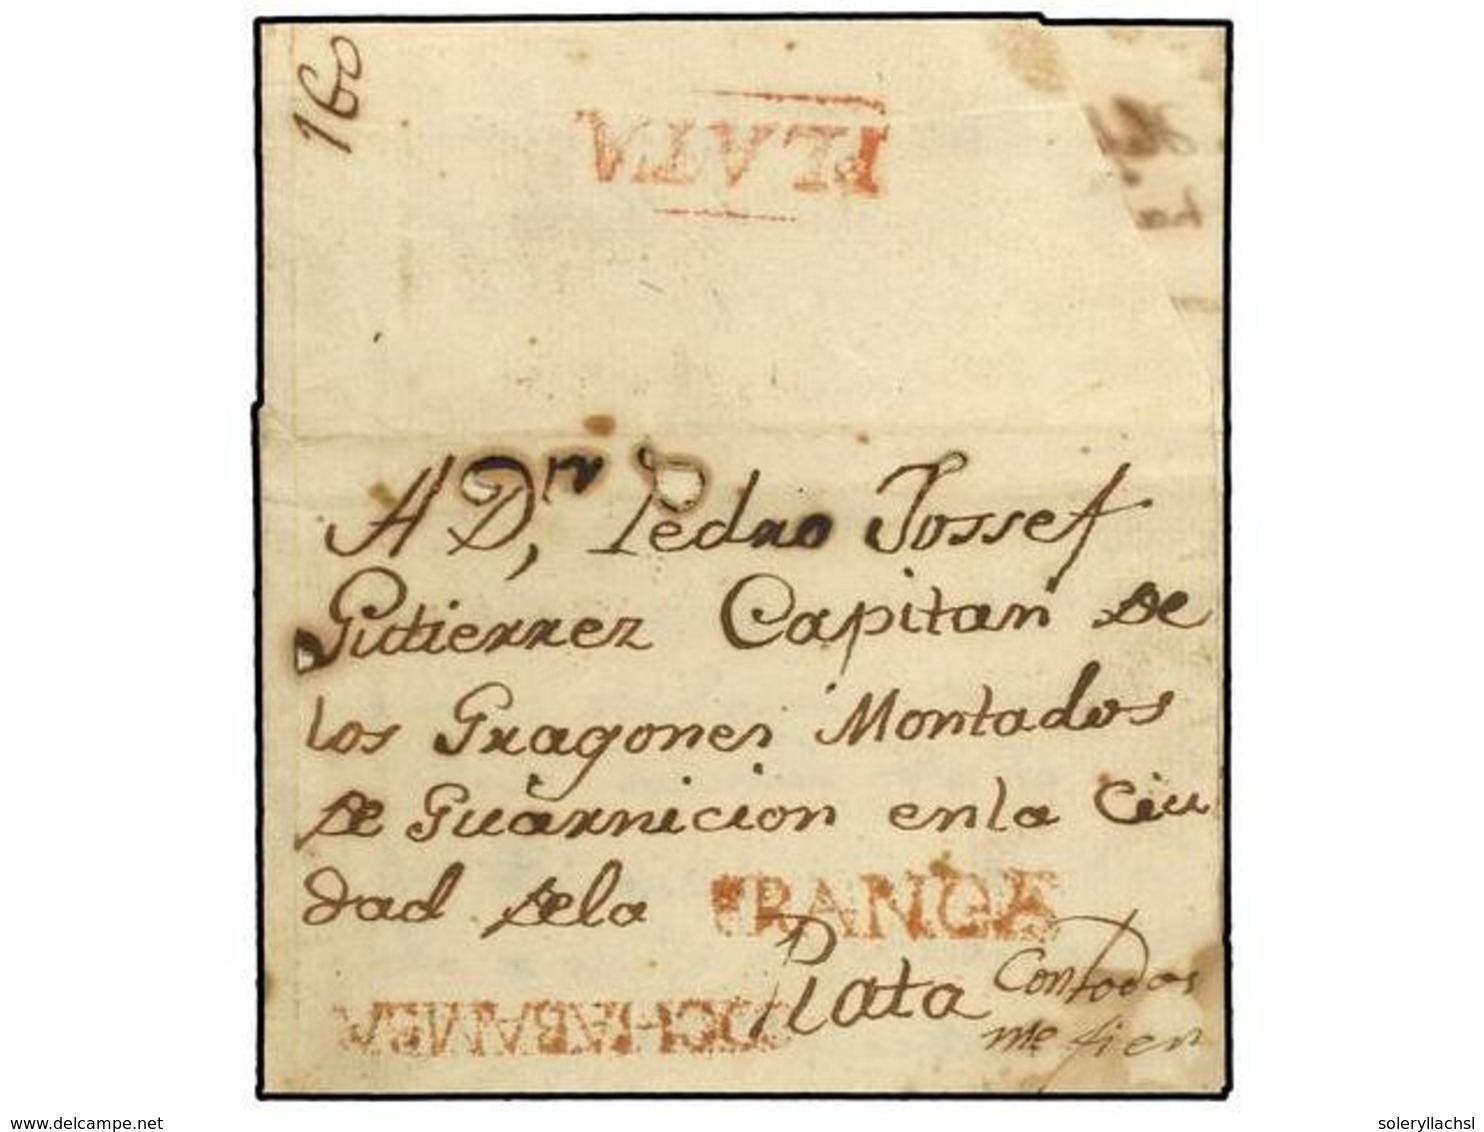 160
PLATA
A Dn. Pedro Jossef
Gutierrez Capitan de
los Dragones Montados
de Guarnicion en la Ciu
dad dela FRANCA
Plata
COCHABAMBA
www.delcampe.net
soleryllachsl